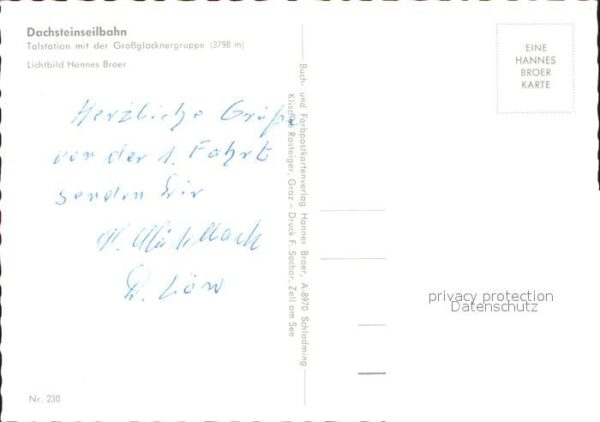 Dachsteinseilbahn
Talstation mit der Großglocknergruppe (3798 m)
Lichtbild Hannes Broer
EINE
HANNES
BROER
KARTE
Herzliche Grüße
von der 1. Fahrt
senden Wir
Buch- und Farbpostkartenverlag Hannes Broer, A-8970 Schladming
Klischee Rasteiger, Graz – Druck F. Sochor, Zell am See
privacy protection
Datenschutz
Nr. 230